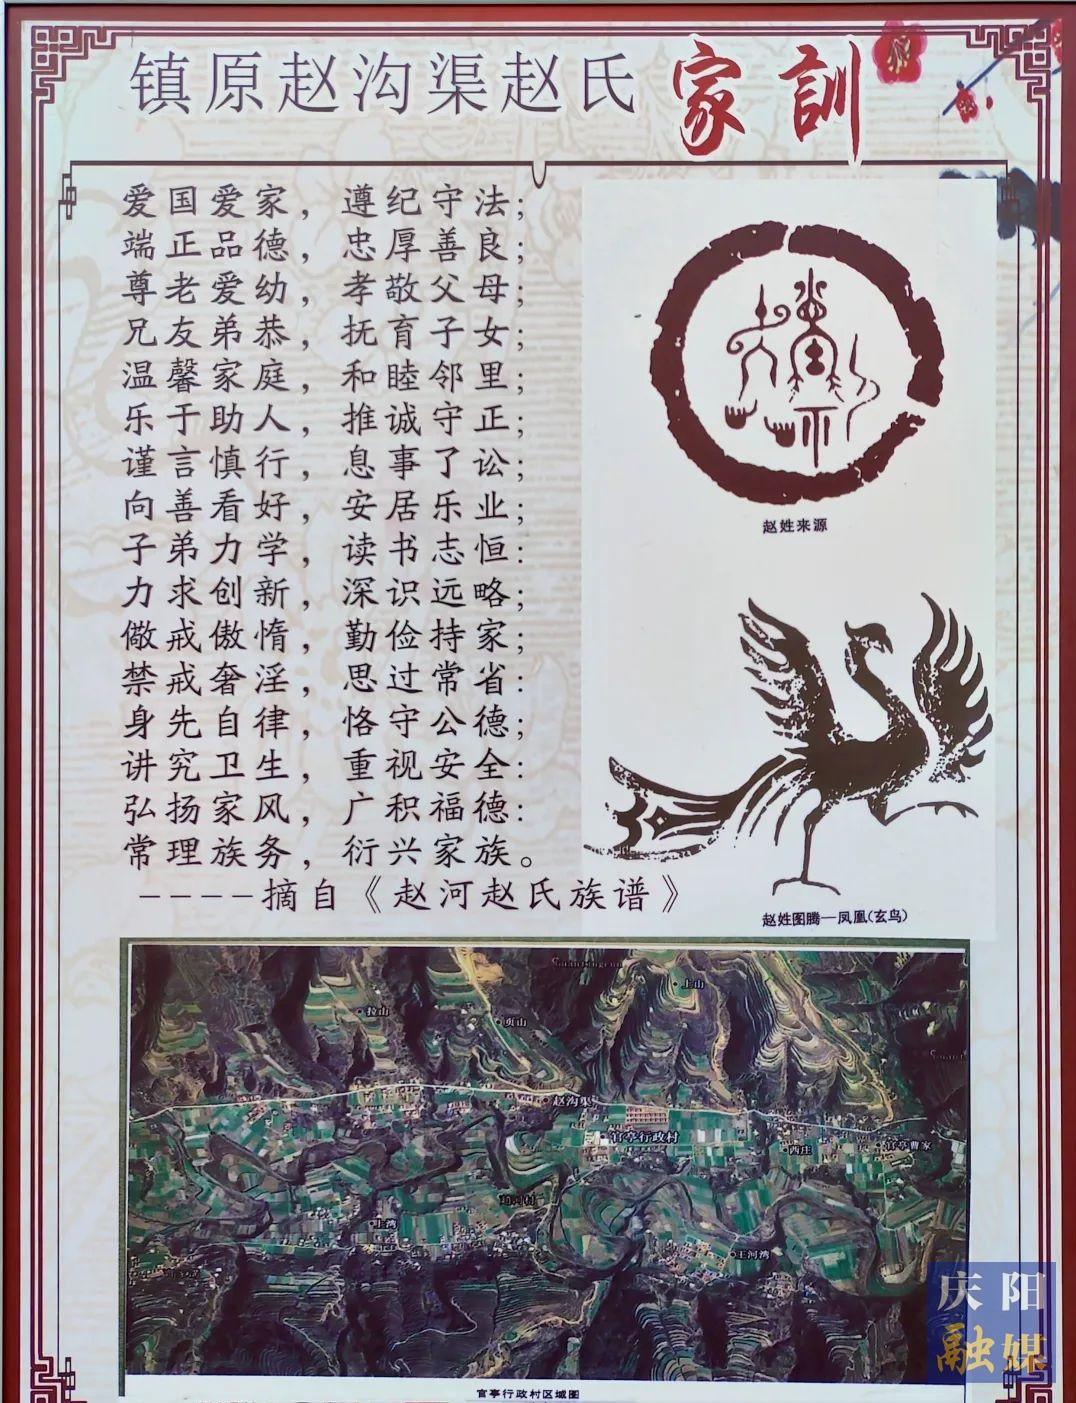 镇原赵沟渠赵氏家訓
爱国爱家，遵纪守法；
端正品德，忠厚善良；
尊老爱幼，孝敬父母；
兄友弟恭，抚育子女；
温馨家庭，和睦邻里；
乐于助人，推诚守正；
谨言慎行，息事了讼；
向善看好，安居乐业；
子弟力学，读书志恒：
力求创新，深识远略；
儆戒傲惰，勤俭持家；
禁戒奢淫，思过常省：
身先自律，恪守公德；
讲究卫生，重视安全：
弘扬家风，广积福德：
常理族务，衍兴家族。
----摘自《赵河赵氏族谱》
赵姓来源
赵姓图腾—凤凰(玄鸟)
上山
页山
赵沟渠
官亭行政村
西庄
官亭曹家
上湾
王河湾
官亭行政村区域图
庆阳
融媒